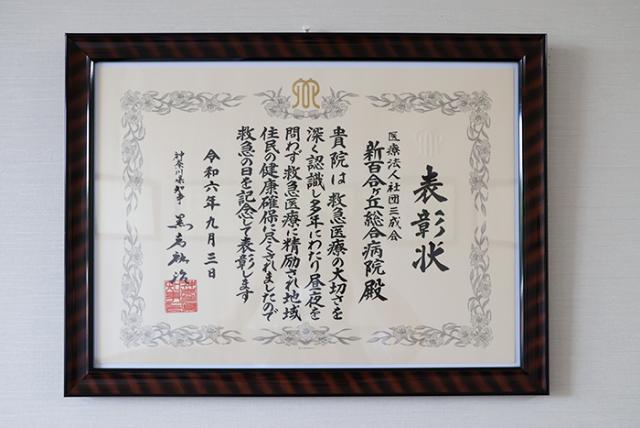 表彰状
医療法人社団三成会
新百合ヶ丘総合病院殿
貴院は救急医療の大切さを
深く認識し多年にわたり昼夜を
問わず救急医療に精励され地域
住民の健康確保に尽くされましたので
救急の日を記念して表彰します
令和六年九月三日
神奈川県知事 黒岩祐治